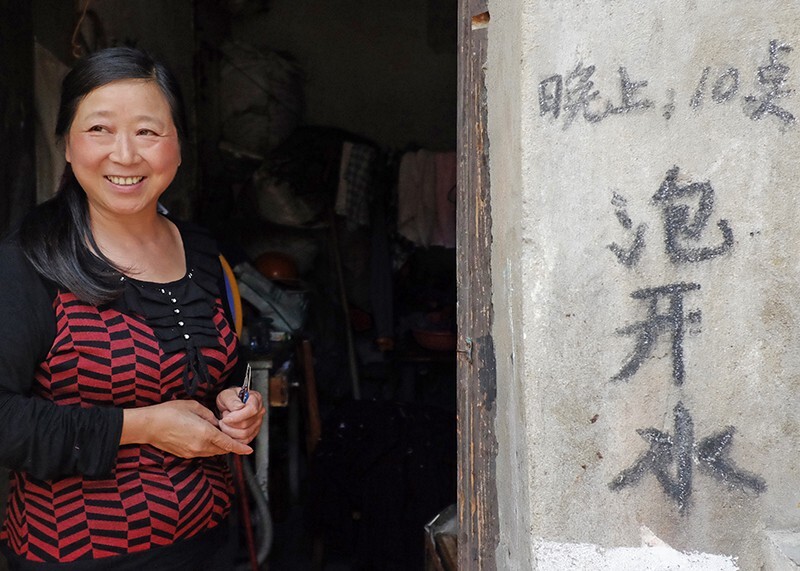 晚上：10点
泡开水